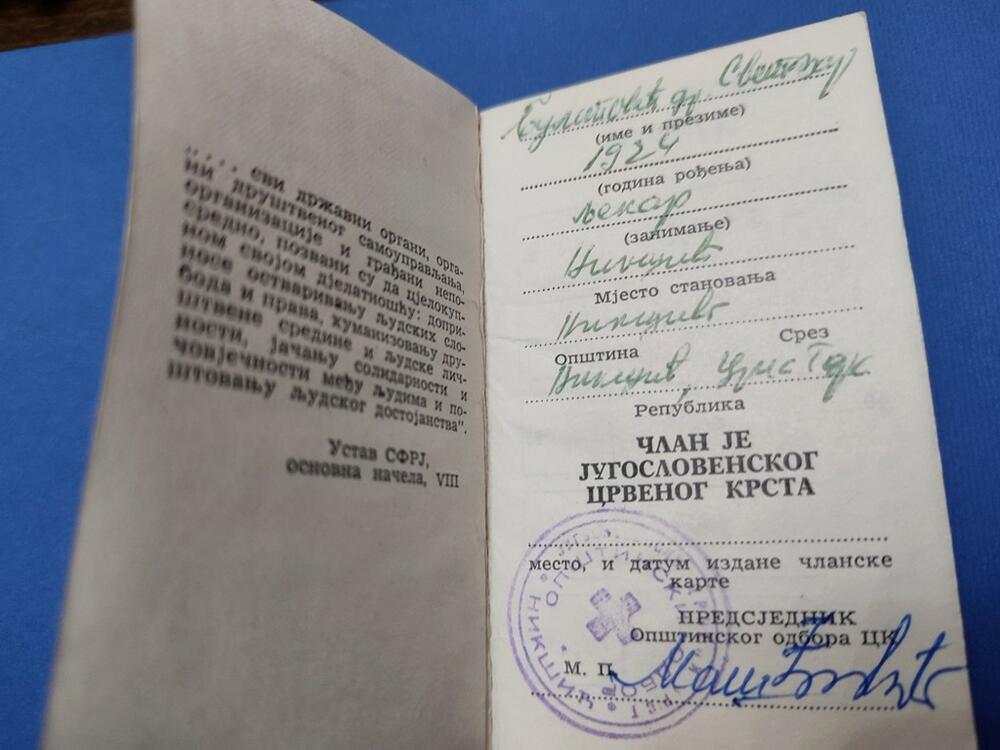 „. . . сви државни органи, орга-
ни друштвеног самоуправљања,
организације и грађани непо-
средно, позвани су да цјелокуп-
ном својом дјелатношћу: допри-
носе остваривању људских сло-
бода и права, хуманизовању дру-
штвене средине и људске лич-
ности, јачању солидарности и
човјечности међу људима и по-
штовању људског достојанства“.
Устав СФРЈ,
основна начела, VIII
Булатовић др. Светозар
(име и презиме)
1924
(година рођења)
љекар
(занимање)
Никшић
Мјесто становања
Никшић
Општина Срез
Никшић, Црна Гора
Република
ЧЛАН ЈЕ
ЈУГОСЛОВЕНСКОГ
ЦРВЕНОГ КРСТА
место, и датум издане чланске
карте
ПРЕДСЈЕДНИК
Општинског одбора ЦК
М. П.
ОПШТИНСКИ ОДБОР
НИКШИЋ